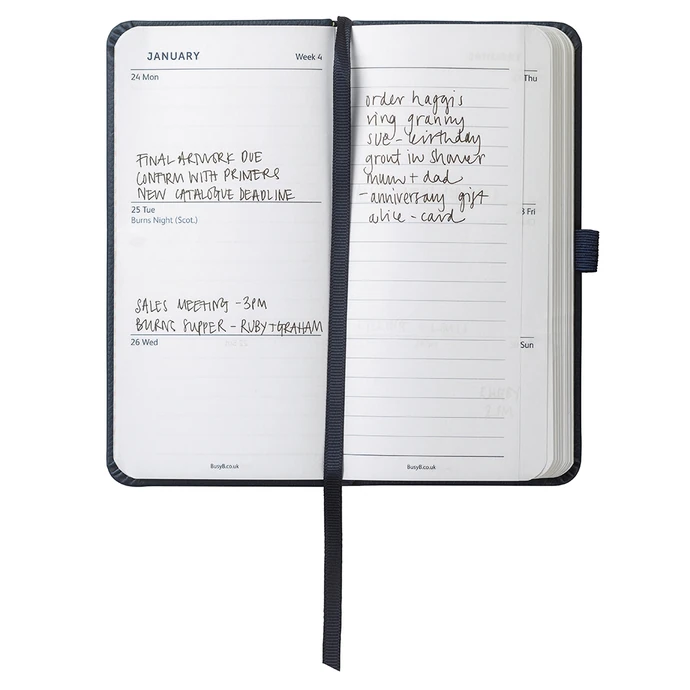 JANUARY Week 4
24 Mon
FINAL ARTWORK DUE
CONFIRM WITH PRINTERS
NEW CATALOGUE DEADLINE
25 Tue
Burns Night (Scot.)
SALES MEETING - 3PM
BURNS SUPPER - RUBY + GRAHAM
26 Wed
BusyB.co.uk
order haggis
ring granny
sue - birthday
grout in shower
mum + dad
- anniversary gift
alice - card
BusyB.co.uk
Thu
Fri
Sun